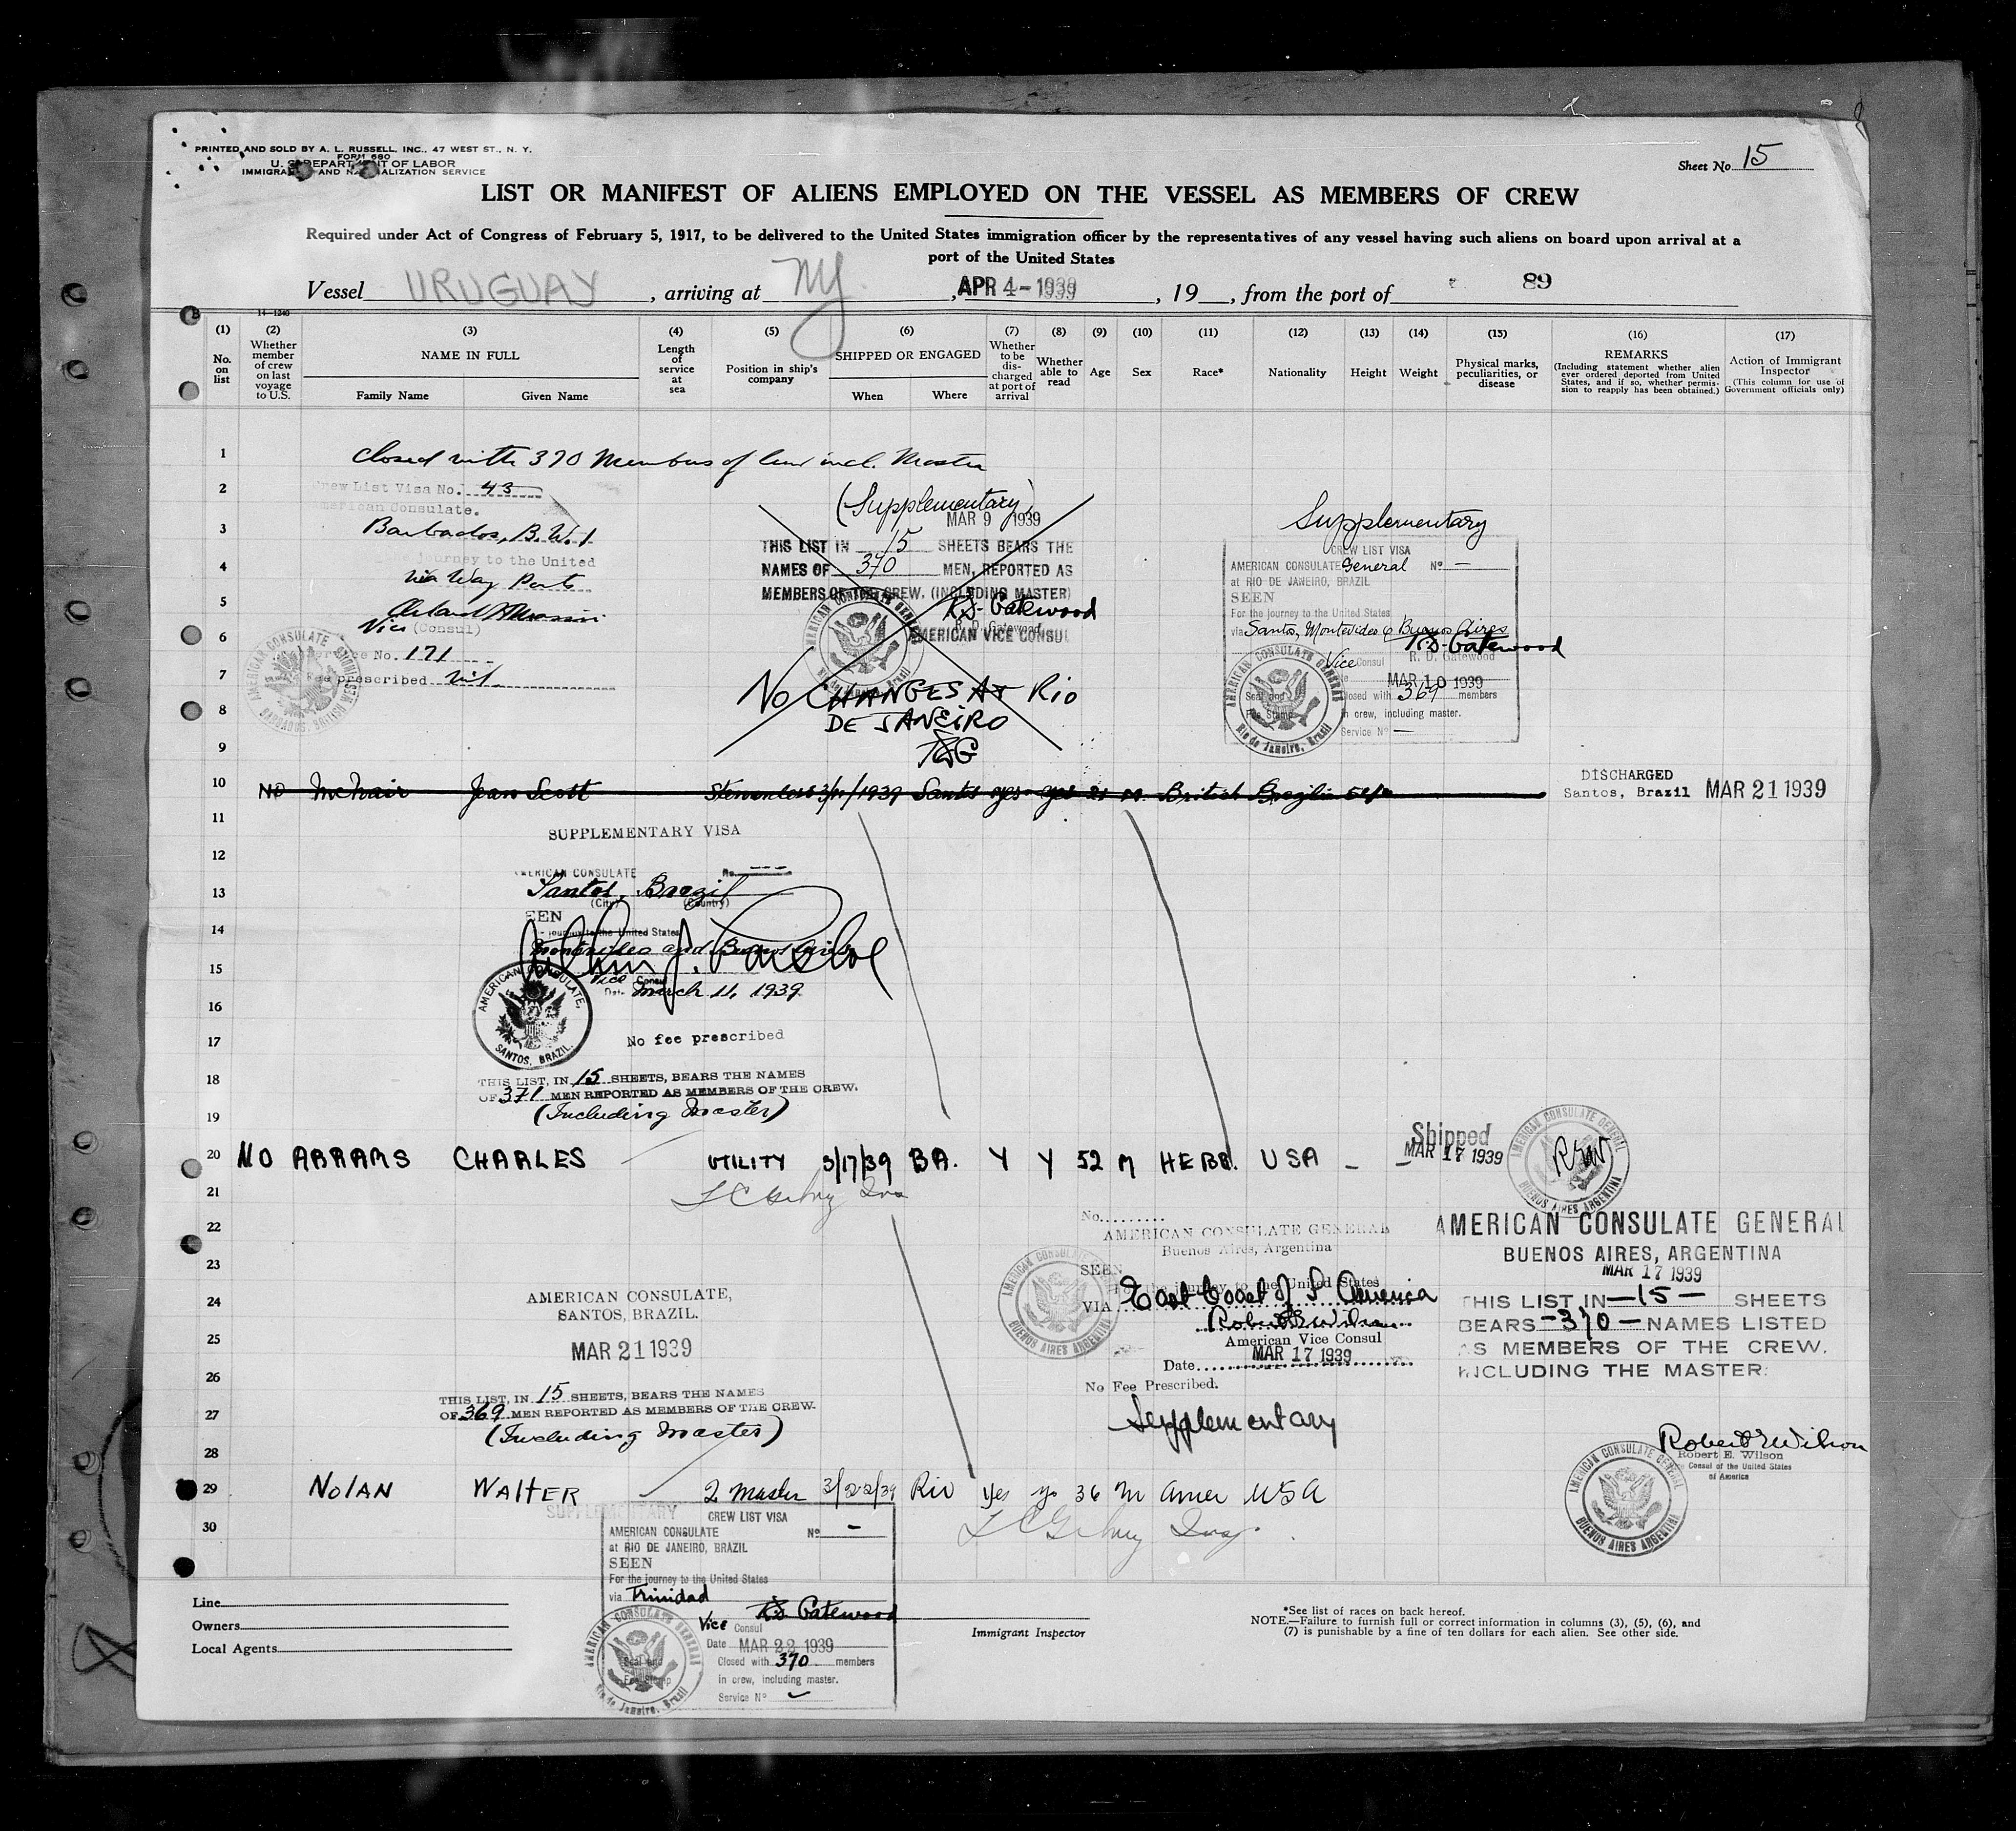 PRINTED AND SOLD BY A. L. RUSSELL, INC., 47 WEST ST., N. Y.
FORM 680
U. S. DEPARTMENT OF LABOR
IMMIGRATION AND NATURALIZATION SERVICE
Sheet No. 15
LIST OR MANIFEST OF ALIENS EMPLOYED ON THE VESSEL AS MEMBERS OF CREW
Required under Act of Congress of February 5, 1917, to be delivered to the United States immigration officer by the representatives of any vessel having such aliens on board upon arrival at a
port of the United States
Vessel URUGUAY, arriving at NY, APR 4-1939, 19__, from the port of 89
14-1240
(1) (2) (3) (4) (5) (6) (7) (8) (9) (10) (11) (12) (13) (14) (15) (16) (17)
No. on list
Whether member of crew on last voyage to U.S.
NAME IN FULL
Family Name Given Name
Length of service at sea
Position in ship's company
SHIPPED OR ENGAGED
When Where
Whether to be discharged at port of arrival
Whether able to read
Age
Sex
Race*
Nationality
Height
Weight
Physical marks, peculiarities, or disease
REMARKS
(Including statement whether alien ever ordered deported from United States, and if so, whether permission to reapply has been obtained.)
Action of Immigrant Inspector
(This column for use of Government officials only)
1 Closed with 370 Members of Crew incl. Master
2 Crew List Visa No. 43
American Consulate.
3 Barbados, B.W.I
the journey to the United
4 via Way Ports
5
Vice (Consul)
6 Service No. 171
7 Fee prescribed nil
8
9
AMERICAN CONSULATE BARBADOS, BRITISH
(Supplementary)
MAR 9 1939
THIS LIST IN 15 SHEETS BEARS THE
NAMES OF 370 MEN, REPORTED AS
MEMBERS OF THE CREW. (INCLUDING MASTER)
R.D. Gatewood
R. D. Gatewood
AMERICAN VICE CONSUL
AMERICAN CONSULATE GENERAL Rio de Janeiro, Brasil
NO CHANGES AT RIO
DE JANEIRO
RDG
Supplementary
CREW LIST VISA
AMERICAN CONSULATE General No —
at RIO DE JANEIRO, BRAZIL
SEEN
For the journey to the United States
via Santos, Montevideo & Buenos Aires
R.D. Gatewood
Vice Consul R. D. Gatewood
Date MAR 10 1939
Seal and Closed with 369 members
Fee Stamp in crew, including master.
Service No —
AMERICAN CONSULATE GENERAL Rio de Janeiro, Brasil
10 No McNair Jean Scott 3/11/1939 Santos yes yes 21 M British Brazilian
DISCHARGED
Santos, Brazil MAR 21 1939
11 SUPPLEMENTARY VISA
12
AMERICAN CONSULATE No. ---
13 Santos, Brazil
(City) (Country)
SEEN
14 journey to the United States
Montevideo and Buenos Aires
15
Vice Consul
Date March 11, 1939
16
AMERICAN CONSULATE, SANTOS, BRAZIL.
17 No fee prescribed
18 THIS LIST, IN 15 SHEETS, BEARS THE NAMES
OF 371 MEN REPORTED AS MEMBERS OF THE CREW.
19 (Including Master)
20 NO ABRAMS CHARLES UTILITY 3/17/39 BA. Y Y 52 M HEBR. USA – –
Shipped
MAR 17 1939
AMERICAN CONSULATE GENERAL BUENOS AIRES ARGENTINA
REW
21
22
23
No.........
AMERICAN CONSULATE GENERAL
Buenos Aires, Argentina
SEEN
For the journey to the United States
VIA East Coast of S America
Robert E Wilson
American Vice Consul
Date MAR 17 1939
No Fee Prescribed.
Supplementary
AMERICAN CONSULATE GENERAL BUENOS AIRES ARGENTINA
AMERICAN CONSULATE GENERAL
BUENOS AIRES, ARGENTINA
MAR 17 1939
THIS LIST IN —15— SHEETS
BEARS —370— NAMES LISTED
AS MEMBERS OF THE CREW.
INCLUDING THE MASTER.
Robert E Wilson
Robert E. Wilson
Consul of the United States
of America
AMERICAN CONSULATE GENERAL BUENOS AIRES ARGENTINA
24 AMERICAN CONSULATE,
SANTOS, BRAZIL.
25 MAR 21 1939
26 THIS LIST, IN 15 SHEETS, BEARS THE NAMES
27 OF 369 MEN REPORTED AS MEMBERS OF THE CREW.
(Including Master)
28
29 NOLAN WALTER 3/22/39 Rio yes yes 36 M Amer USA
30
SUPPLEMENTARY
CREW LIST VISA
AMERICAN CONSULATE No —
at RIO DE JANEIRO, BRAZIL
SEEN
For the journey to the United States
via Trinidad
R.D. Gatewood
Vice Consul
Date MAR 22 1939
Seal and Closed with 370 members
Fee Stamp in crew, including master.
Service No
AMERICAN CONSULATE GENERAL Rio de Janeiro, Brasil
Line
Owners
Local Agents
Immigrant Inspector
*See list of races on back hereof.
NOTE.—Failure to furnish full or correct information in columns (3), (5), (6), and
(7) is punishable by a fine of ten dollars for each alien. See other side.